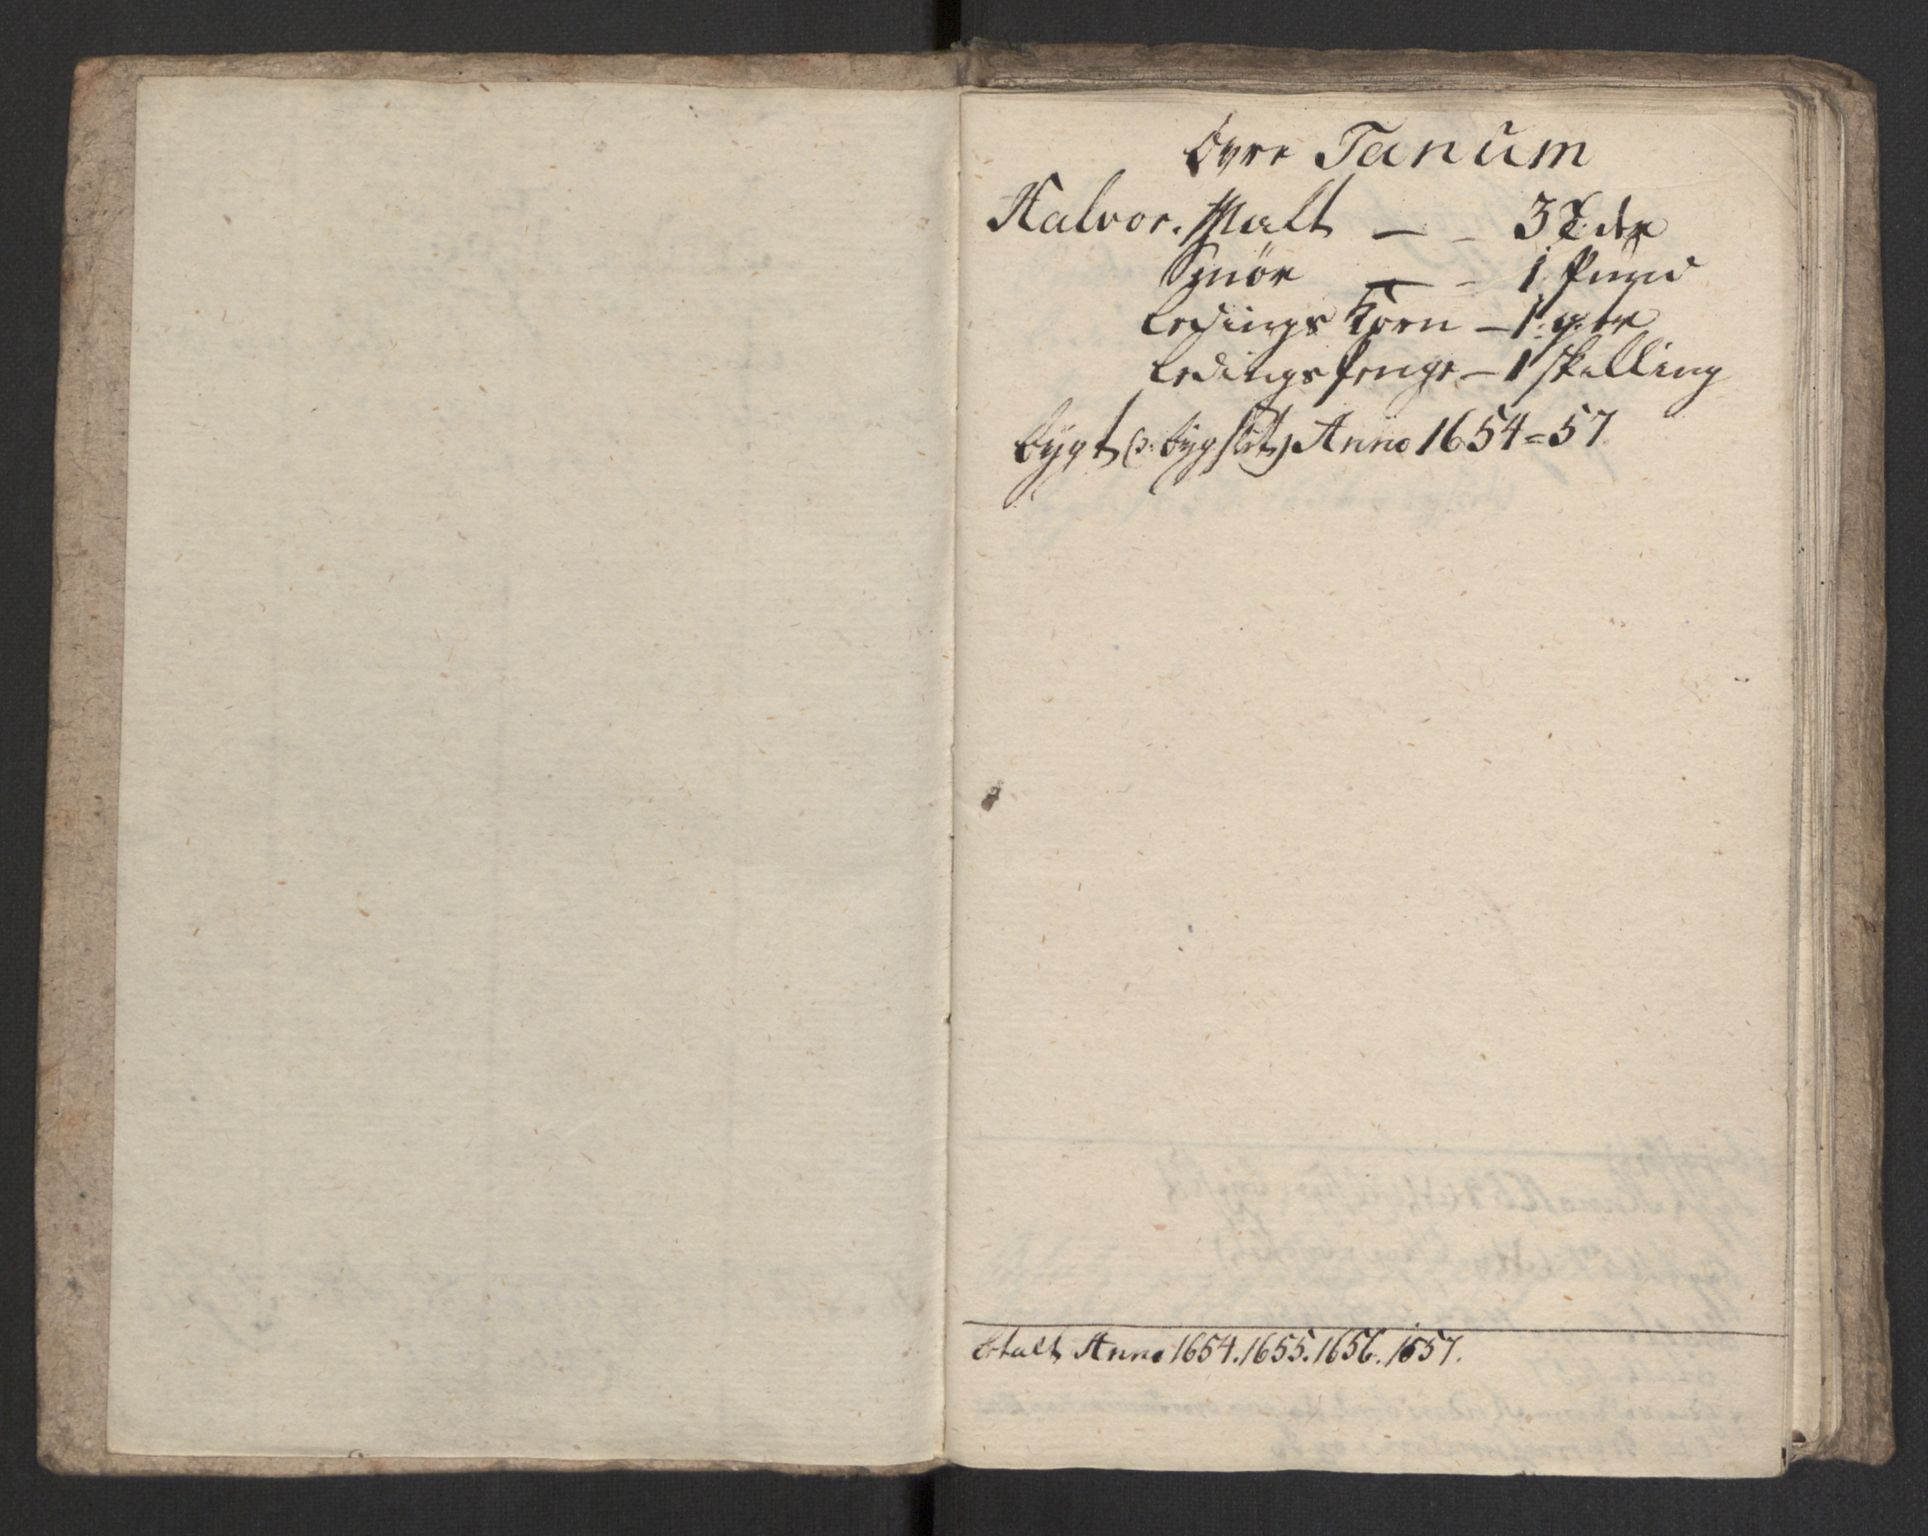 Øvre Tanum
Halvor. Malt — - 3 
Smør — - 1 Pund
Ledings Korn — 1
Ledings penge — 1 skelling
bygt (ɔ: bygslet) Anno 1654=57.
betalt Anno 1654. 1655. 1656. 1657.